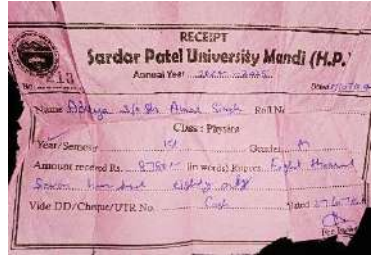 RECEIPT
Sardar Patel University Mandi (H.P.)
Annual Year 2024-2025
No. 213 Dated
Name Aditya S/o Sh. Amar Singh Roll No
Class : Physics
Year/Semester 1st Gender M
Amount received Rs. 8780/- (in words) Rupees Eight thousand
Seven hundred eighty only
Vide DD/Cheque/UTR No. Cash Dated